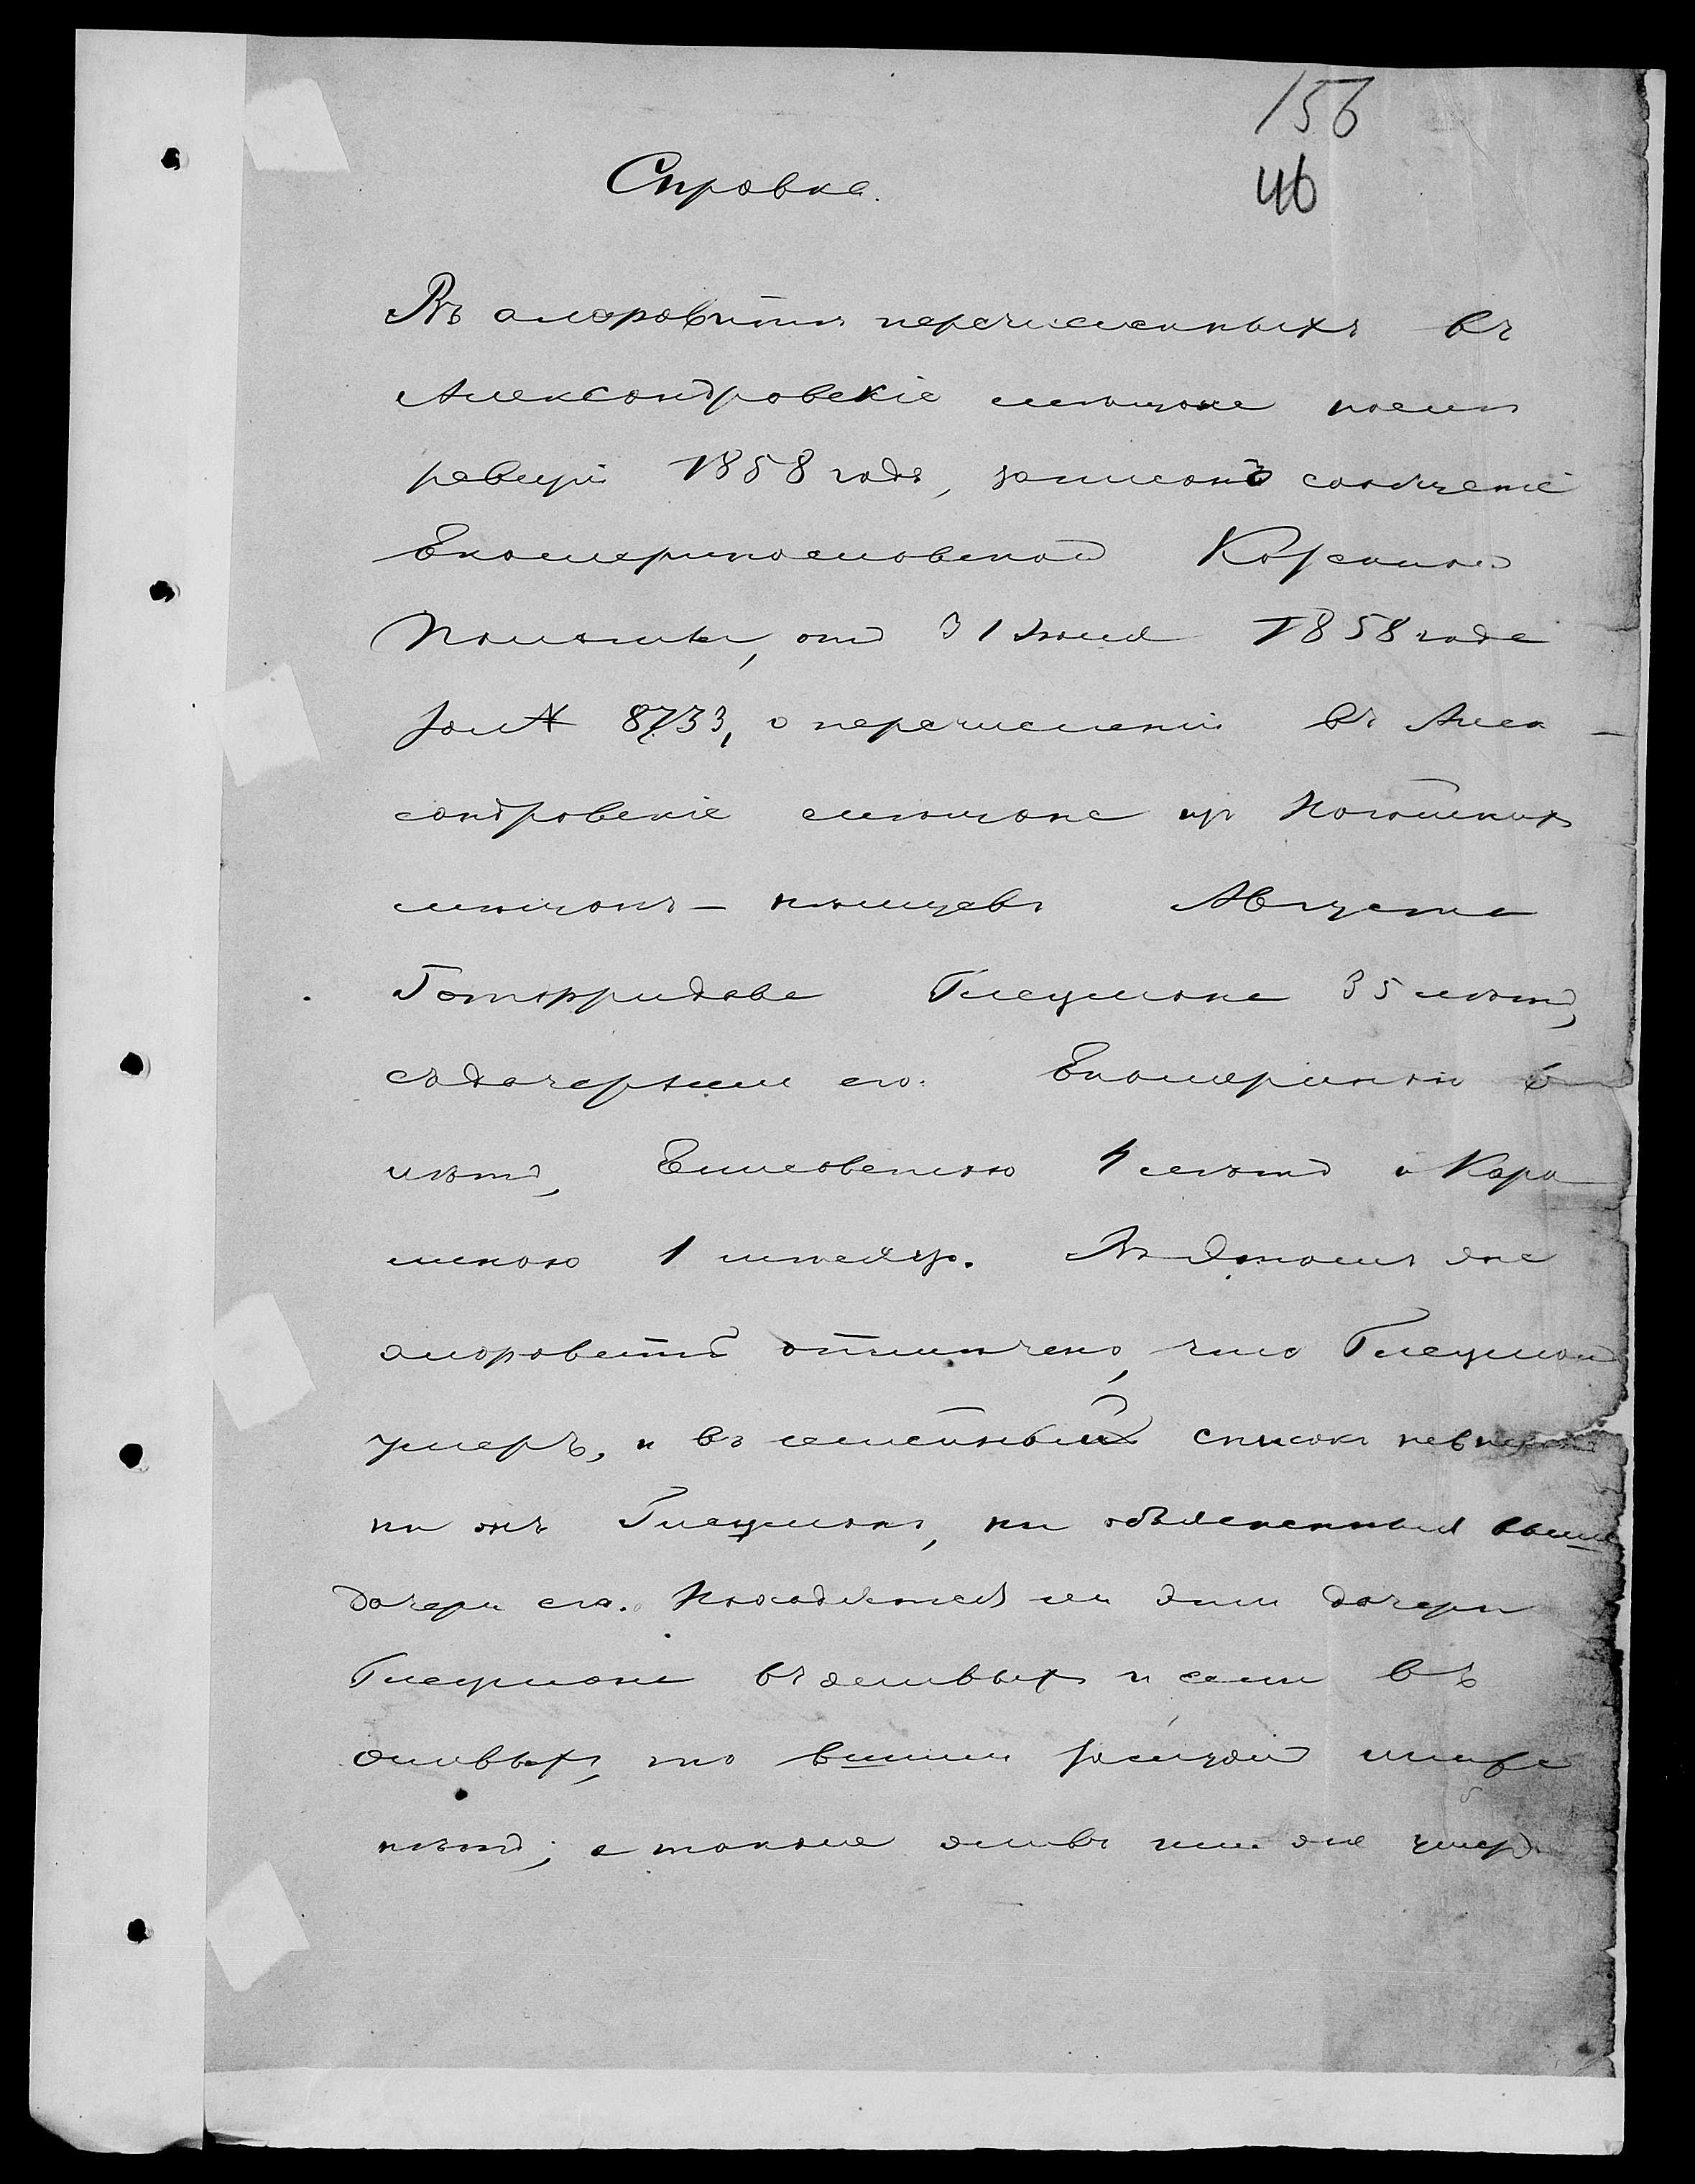 156
46
Справка.
Въ алфавитѣ перечисленныхъ въ
Александровскіе мѣщане послѣ
ревизіи 1858 года, записано сообщеніе
Екатеринославской Казенной
Палаты, отъ 31 Іюля 1858 года
за № 8733, о перечисленіи въ Алек-
сандровскіе мѣщане изъ
мѣщанъ- нѣмцевъ Августа
Готфридова Глеумана 35 лѣтъ,
съ дочерьми его: Екатериною 6
лѣтъ, Елисаветою 4 лѣтъ и Каро
линою 1 мѣсяцъ. Въ этомъ же
алфавитѣ отмѣчено, что Глеуман
умеръ, и въ семейный списокъ
ни онъ Глеуманъ, ни объясненныя выше
дочери его. Находятся ли эти дочери
Глеумана въ живыхъ и если въ
живыхъ, то
нѣтъ; а также живъ или же умеръ